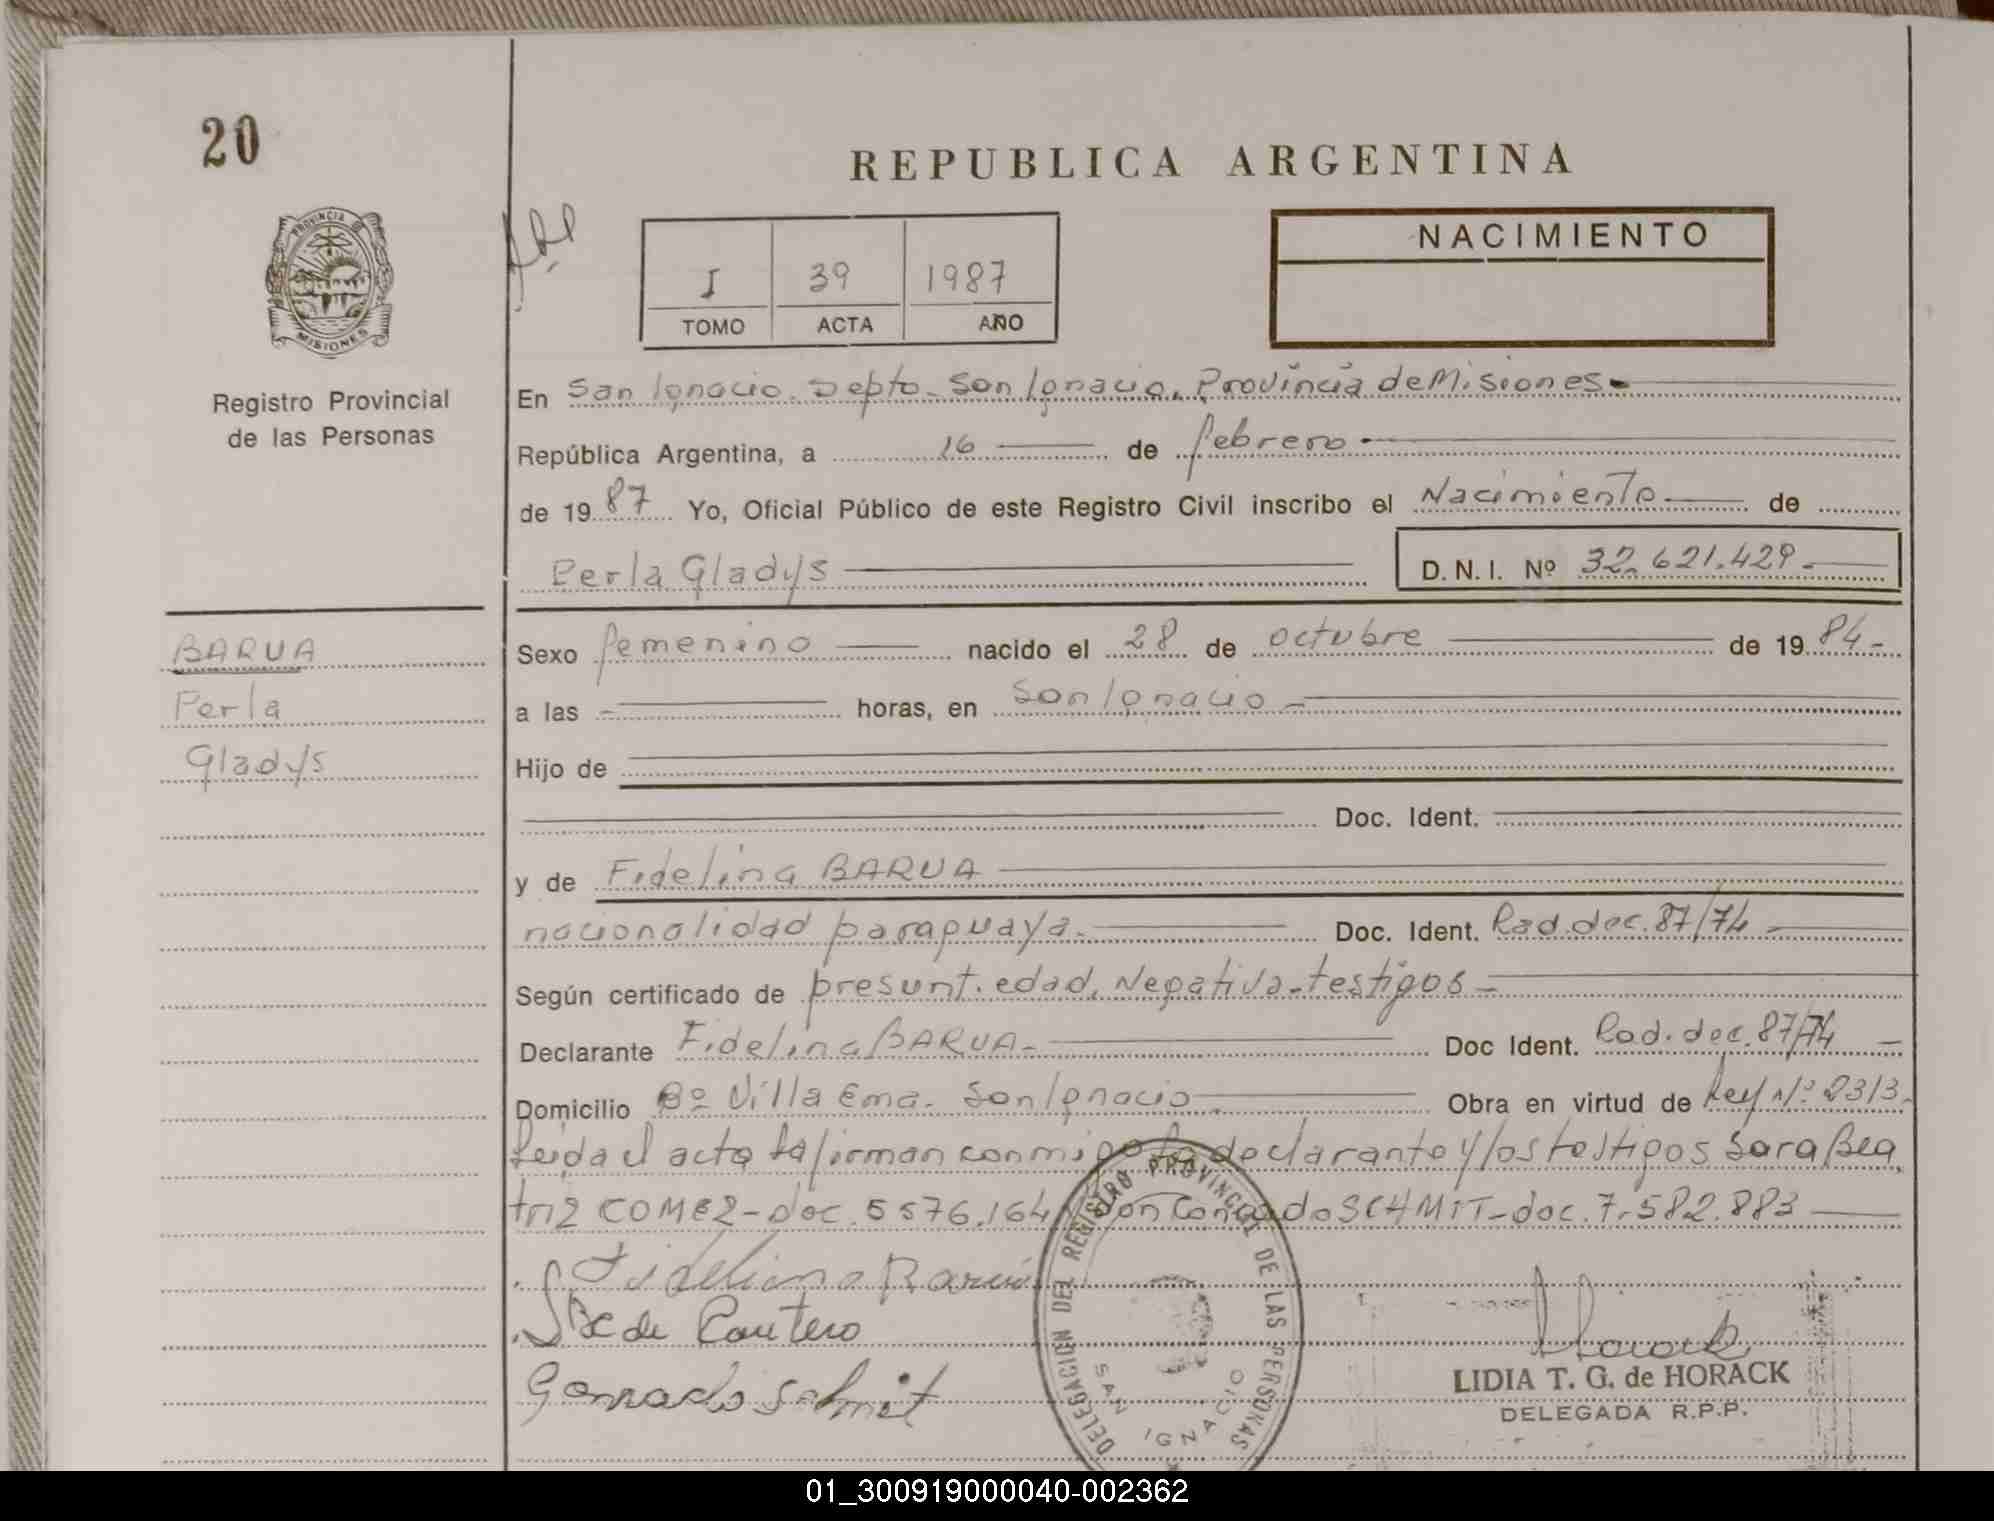 20
REPUBLICA ARGENTINA
PROVINCIA DE
MISIONES
NACIMIENTO
I 39 1987
TOMO ACTA AÑO
Registro Provincial
de las Personas
En San Ignacio. Depto. San Ignacio, Provincia de Misiones
República Argentina, a 16 de febrero
de 1987 Yo, Oficial Público de este Registro Civil inscribo el Nacimiento de
Perla Gladys D.N.I. Nº 32.621.429
BARUA
Perla
Gladys
Sexo femenino nacido el 28 de octubre de 1984
a las horas, en San Ignacio
Hijo de
Doc. Ident.
y de Fidelina BARUA
nacionalidad paraguaya. Doc. Ident. Rad. dec. 87/74
Según certificado de presunt. edad, Negativa-testigos
Declarante Fidelina BARUA Doc Ident. Rad. dec. 87/74
Domicilio Bº Villa Ema. San Ignacio Obra en virtud de Ley Nº 2313.
Leida el acta la firman conmigo la declarante y los testigos Sara Bea
triz GOMEZ-doc. 5576.164 y Don Conrado SCHMIT-doc. 7.582.883
Fidelina Barúa
Conrado Schmit
DELEGACION DEL REGISTRO PROVINCIAL DE LAS PERSONAS
SAN IGNACIO
Horack
LIDIA T. G. de HORACK
DELEGADA R.P.P.
01_300919000040-002362